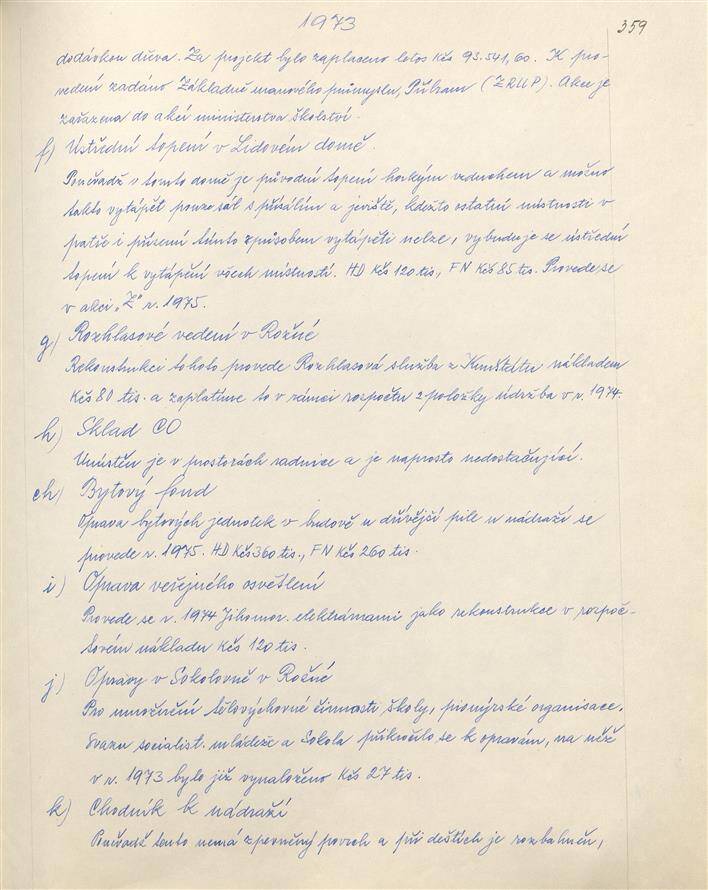 1973
359
dodávkou dřeva. Za projekt bylo zaplaceno letos Kčs 93.541,60. K pro-
vedení zadáno Základně uranového průmyslu, Příbram (ZRUP). Akce je
zařazena do akcí ministerstva školství.
f) Ústřední topení v Lidovém domě.
Poněvadž v tomto domě je původní topení horkým vzduchem a možno
takto vytápět pouze sál s přísálím a jeviště, kdežto ostatní místnosti v
patře i přízemí tímto způsobem vytápěti nelze, vybuduje se ústřední
topení k vytápění všech místností. HD Kčs 120 tis., FN Kčs 85 tis. Provede se
v akci „Z" r. 1975.
g) Rozhlasové vedení v Rožné
Rekonstrukci tohoto provede Rozhlasová služba z Kunštátu nákladem
Kčs 80 tis. a zaplatíme to v rámci rozpočtu z položky údržba v r. 1974.
h) Sklad CO
Umístěn je v prostorách radnice a je naprosto nedostačující.
ch) Bytový fond
Oprava bytových jednotek v budově u dřívější pile u nádraží se
provede r. 1975. HD Kčs 360 tis., FN Kčs 260 tis.
i) Oprava veřejného osvětlení
Provede se r. 1974 Jihomor. elektrárnami jako rekonstrukce v rozpoč-
tovém nákladu Kčs 120 tis.
j) Opravy v Sokolovně v Rožné
Pro umožnění tělovýchovné činnosti školy, pionýrské organisace,
Svazu socialist. mládeže a Sokola přikročilo se k opravám, na něž
v r. 1973 bylo již vynaloženo Kčs 27 tis.
k) Chodník k nádraží
Poněvadž tento nemá zpevněný povrch a při deštích je rozbahněn,